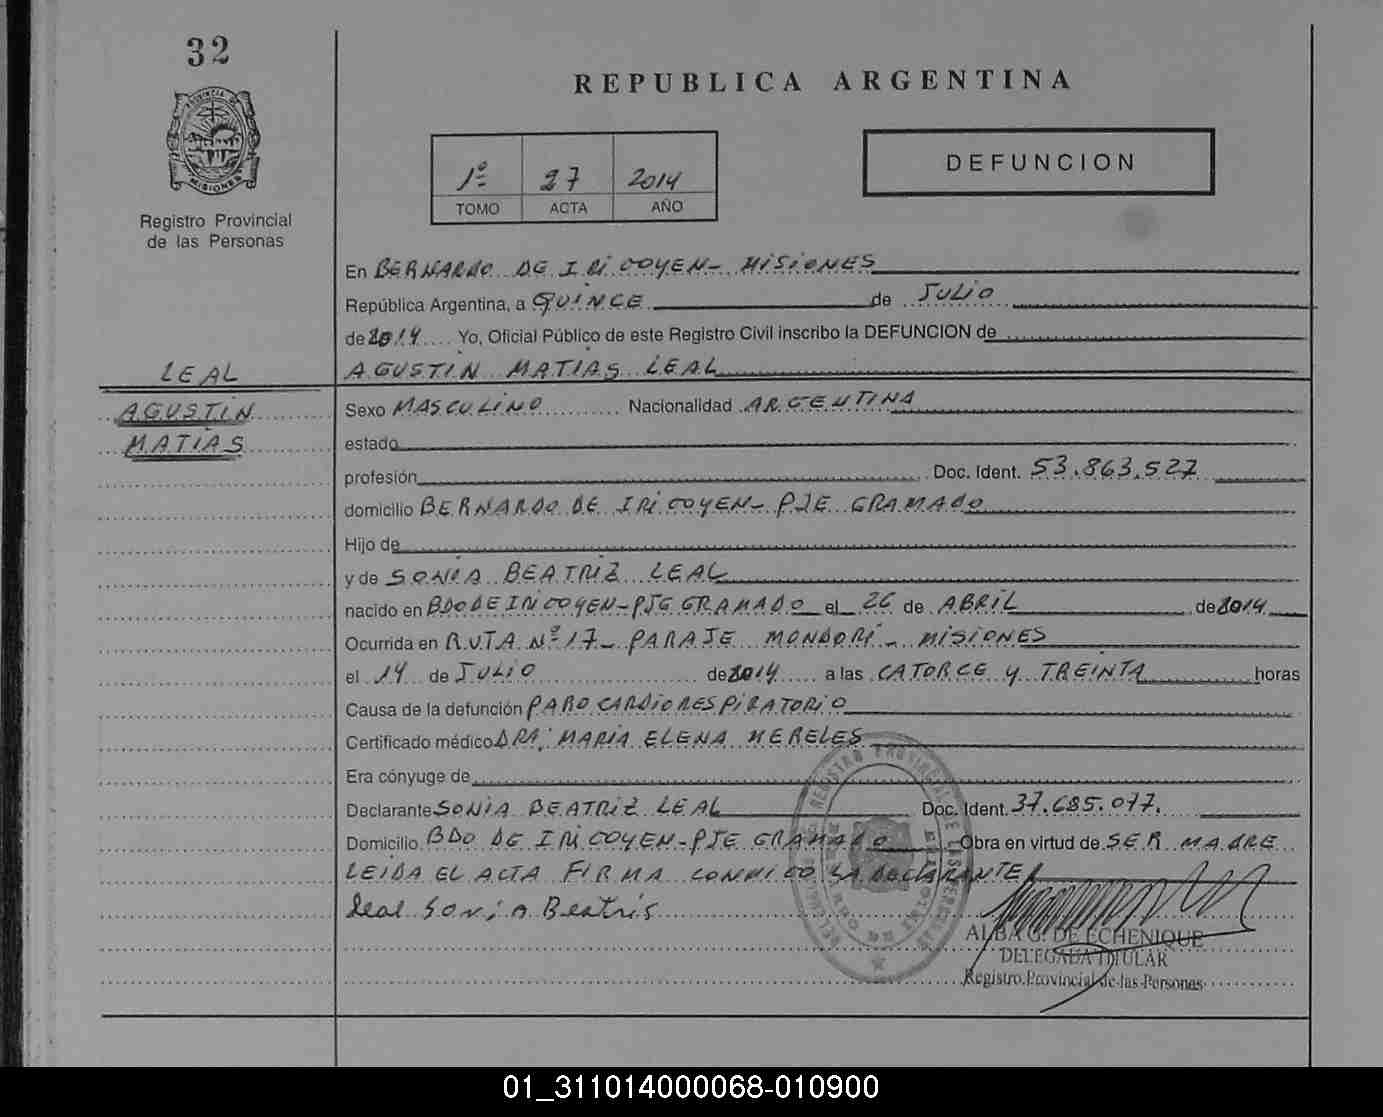 32
REPUBLICA ARGENTINA
PROVINCIA DE
MISIONES
Registro Provincial
de las Personas
1º 27 2014
TOMO ACTA AÑO
DEFUNCION
En BERNARDO DE IRIGOYEN - MISIONES
República Argentina, a QUINCE de JULIO
de 2014 Yo, Oficial Público de este Registro Civil inscribo la DEFUNCION de
LEAL
AGUSTIN MATIAS LEAL
AGUSTIN
MATIAS
Sexo MASCULINO Nacionalidad ARGENTINA
estado
profesión Doc. Ident. 53.863.527
domicilio BERNARDO DE IRIGOYEN - PJE GRAMADO
Hijo de
y de SONIA BEATRIZ LEAL
nacido en BDO DE IRIGOYEN - PJE GRAMADO el 26 de ABRIL de 2014
Ocurrida en RUTA Nº 17 - PARAJE MONDORI - MISIONES
el 14 de JULIO de 2014 a las CATORCE Y TREINTA horas
Causa de la defunción PARO CARDIORESPIRATORIO
Certificado médico DRA: MARIA ELENA MERELES
Era cónyuge de
Declarante SONIA BEATRIZ LEAL Doc. Ident. 37.685.077.
Domicilio BDO DE IRIGOYEN - PJE GRAMADO Obra en virtud de SER MADRE
LEIDA EL ACTA FIRMA CONMIGO LA DECLARANTE
Leal Sonia Beatris
ALBA G. DE ECHENIQUE
DELEGADA TITULAR
Registro Provincial de las Personas
01_311014000068-010900